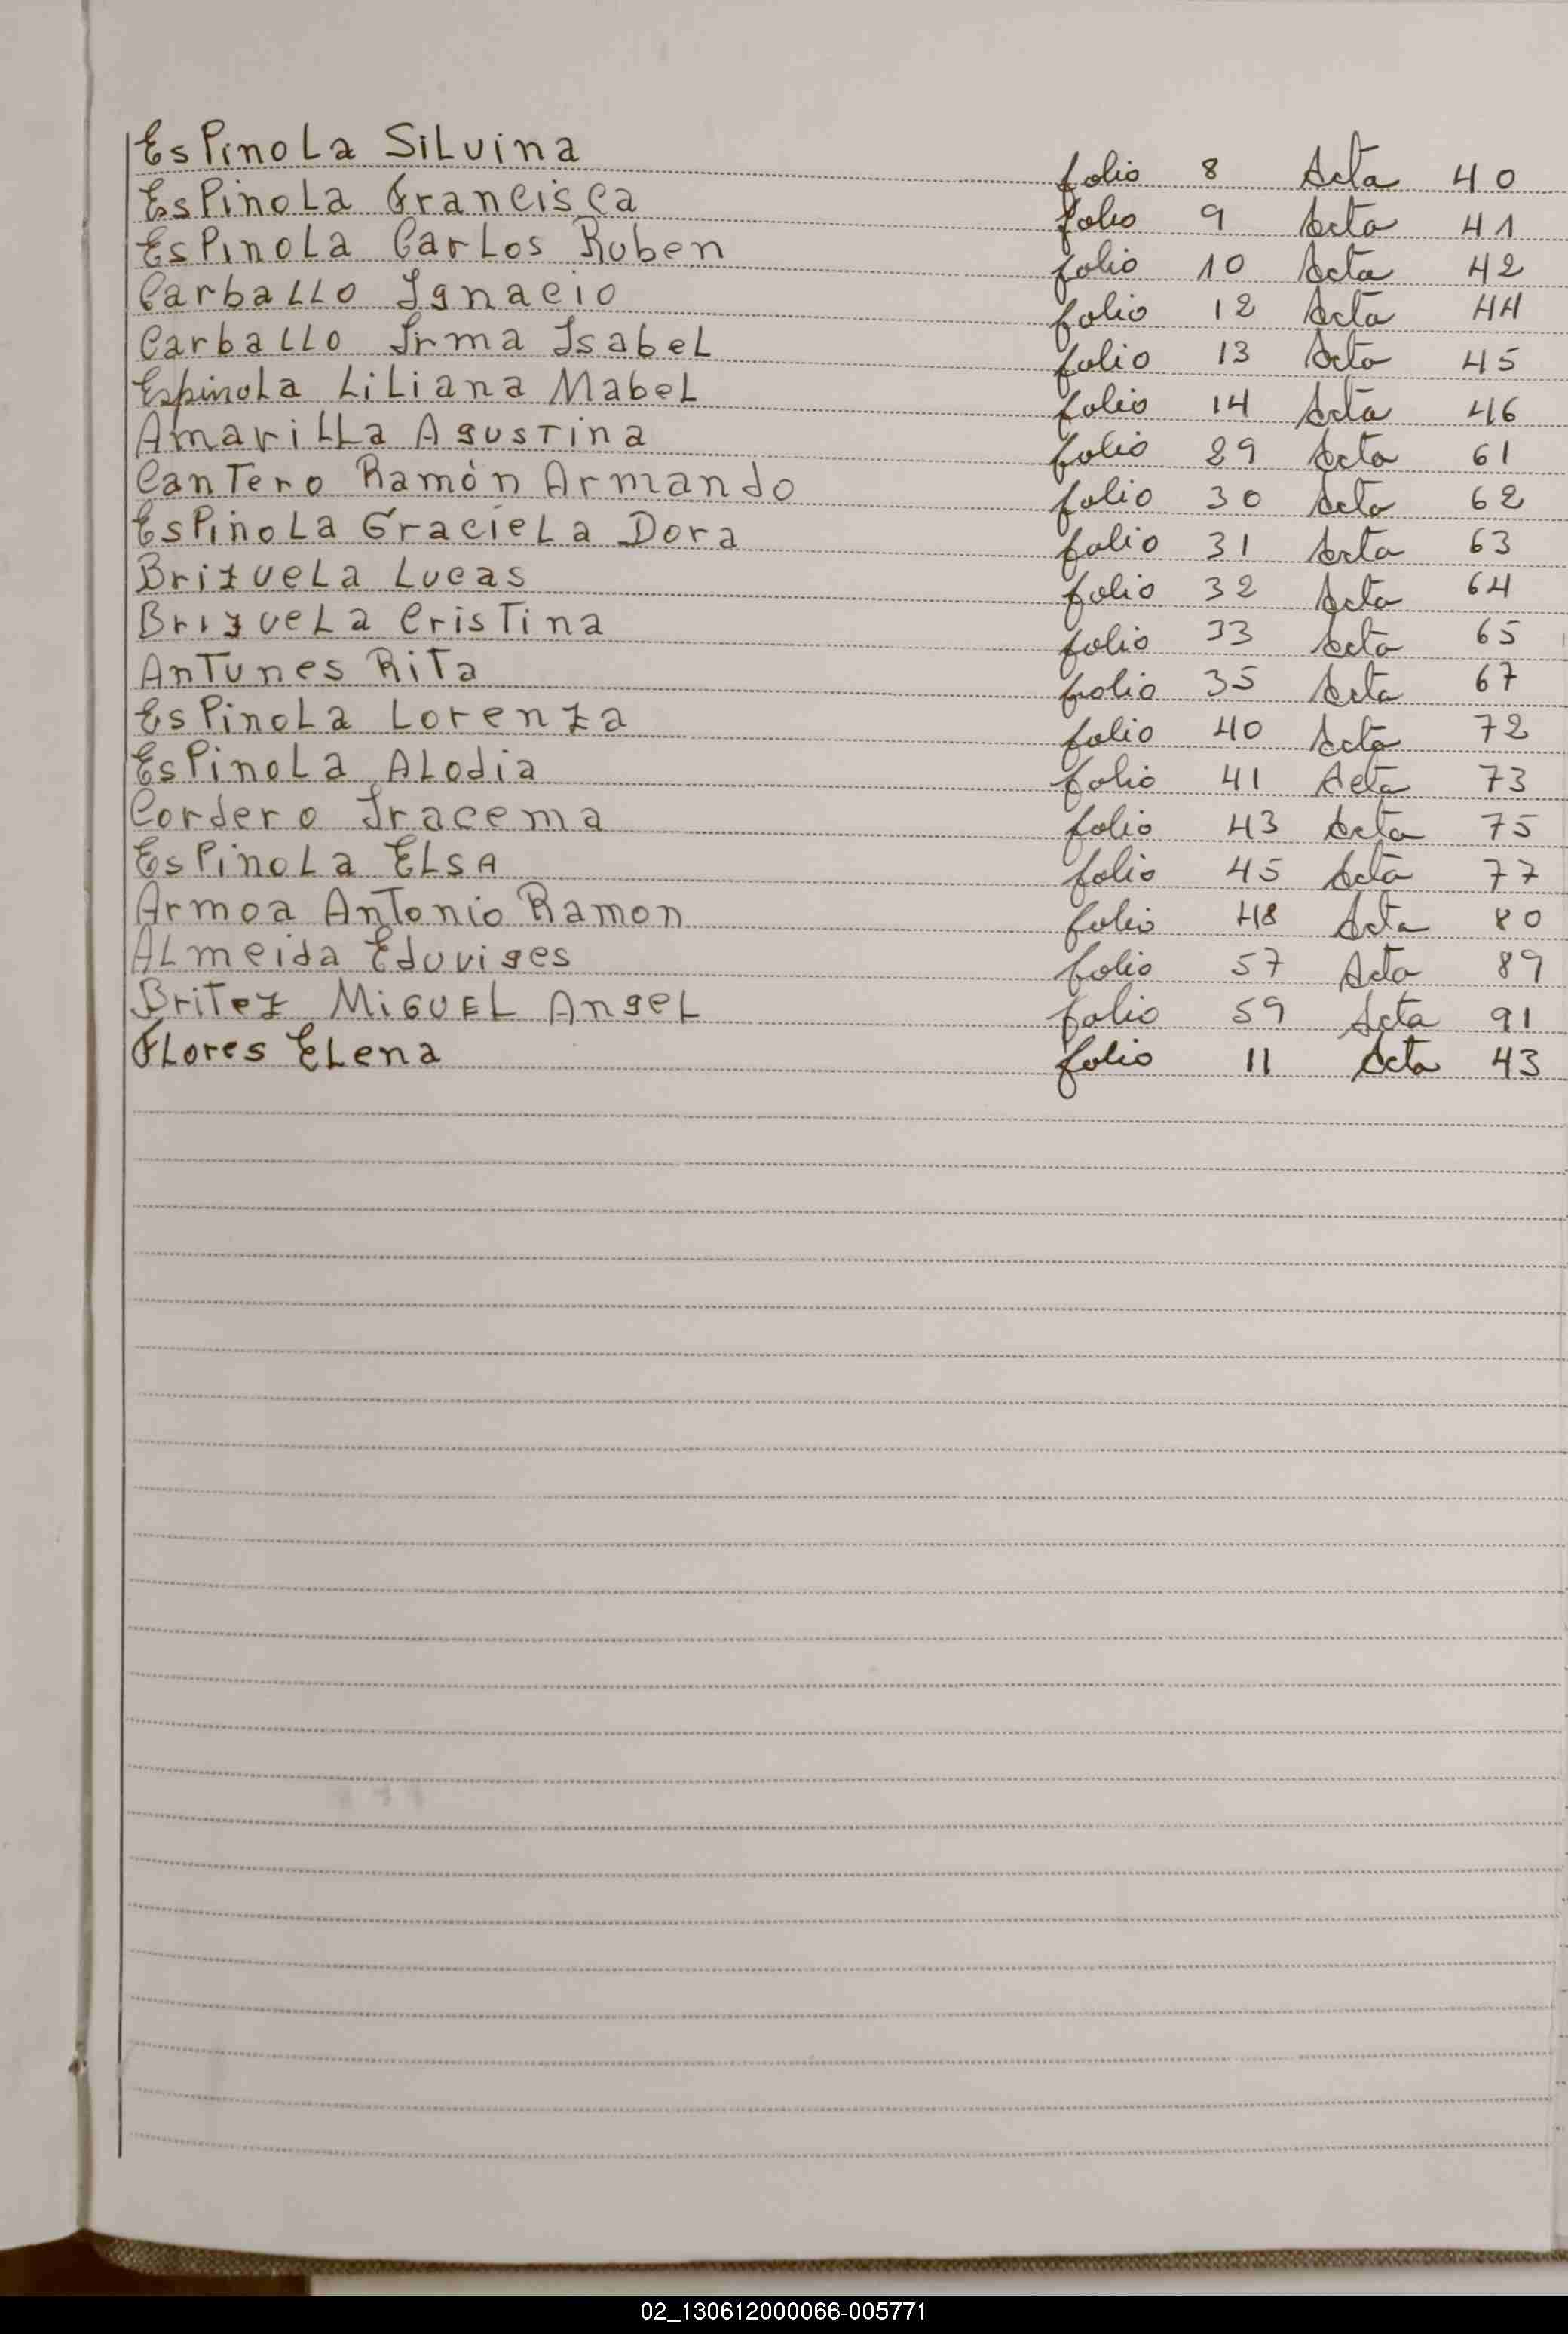 Espinola Silvina folio 8 Acta 40
Espinola Francisca folio 9 Acta 41
Espinola Carlos Ruben folio 10 Acta 42
Carballo Ignacio folio 12 Acta 44
Carballo Irma Isabel folio 13 Acta 45
Espinola Liliana Mabel folio 14 Acta 46
Amarilla Agustina folio 29 Acta 61
Cantero Ramón Armando folio 30 Acta 62
Espinola Graciela Dora folio 31 Acta 63
Brizuela Lucas folio 32 Acta 64
Brizuela Cristina folio 33 Acta 65
Antunes Rita folio 35 Acta 67
Espinola Lorenza folio 40 Acta 72
Espinola Alodia folio 41 Acta 73
Cordero Iracema folio 43 Acta 75
Espinola Elsa folio 45 Acta 77
Armoa Antonio Ramon folio 48 Acta 80
Almeida Eduviges folio 57 Acta 89
Britez Miguel Angel folio 59 Acta 91
Flores Elena folio 11 Acta 43
02_130612000066-005771